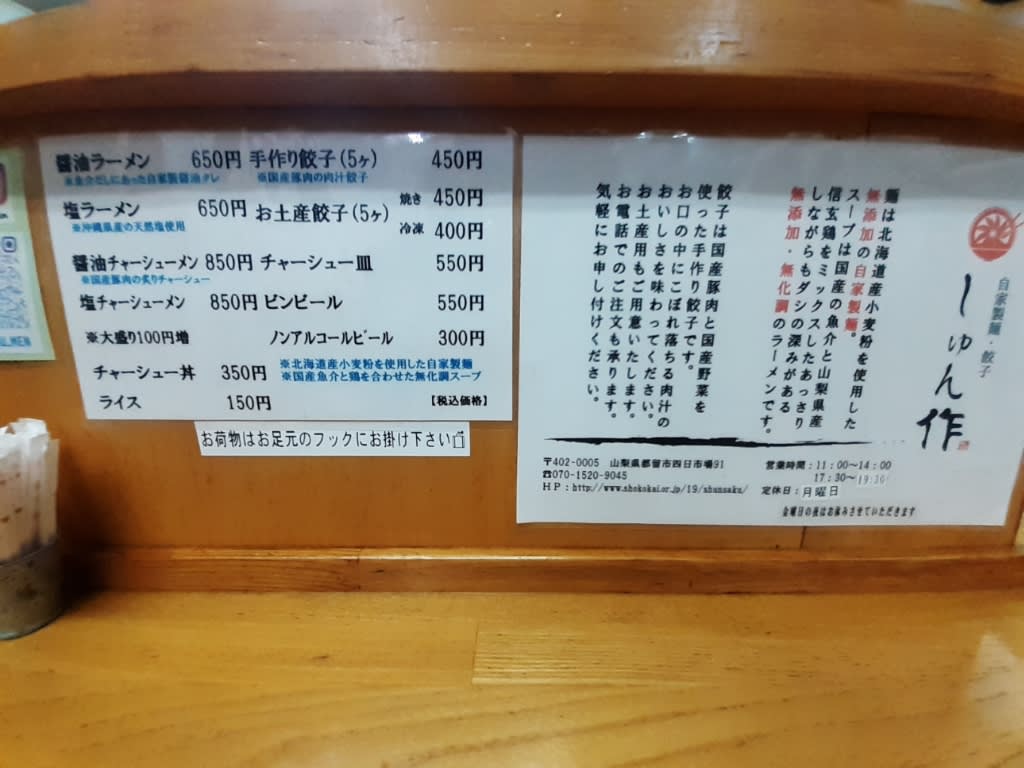 醤油ラーメン 650円
※魚介だしにあった自家製醤油ダレ
塩ラーメン 650円
※沖縄県産の天然塩使用
醤油チャーシューメン 850円
※国産豚肉の炙りチャーシュー
塩チャーシューメン 850円
※大盛り100円増
チャーシュー丼 350円
ライス 150円
手作り餃子(5ヶ) 450円
※国産豚肉の肉汁餃子
お土産餃子(5ヶ) 焼き 450円
冷凍 400円
チャーシュー皿 550円
ビンビール 550円
ノンアルコールビール 300円
※北海道産小麦粉を使用した自家製麺
※国産魚介と鶏を合わせた無化調スープ
【税込価格】
お荷物はお足元のフックにお掛け下さい
自家製麺・餃子
しゅん作
麺は北海道産小麦粉を使用した
無添加の自家製麺。
スープは国産の魚介と山梨県産
信玄鶏をミックスしたあっさり
しながらもダシの深みがある
無添加・無化調のラーメンです。
餃子は国産豚肉と国産野菜を
使った手作り餃子です。
お口の中にこぼれ落ちる肉汁の
おいしさを味わってください。
お土産用もご用意いたします。
お電話でのご注文も承ります。
気軽にお申し付けください。
〒402-0005 山梨県都留市四日市場91
☎070-1520-9045
HP：http://www.shokokai.or.jp/19/shunsaku/
営業時間：11：00～14：00
17：30～19:30
定休日：月曜日
金曜日の夜はお休みさせていただきます